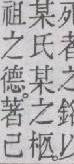 死者之銘以
某氏某之柩
祖之德著己